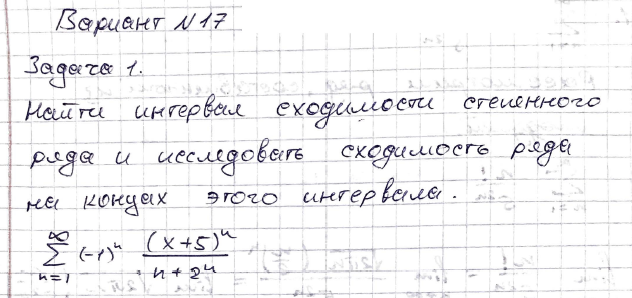 Вариант N17
Задача 1.
Найти интервал сходимости степенного
ряда и исследовать сходимость ряда
на концах этого интервала.
∞
∑ (-1)ⁿ (x+5)ⁿ / (n+2ⁿ)
n=1